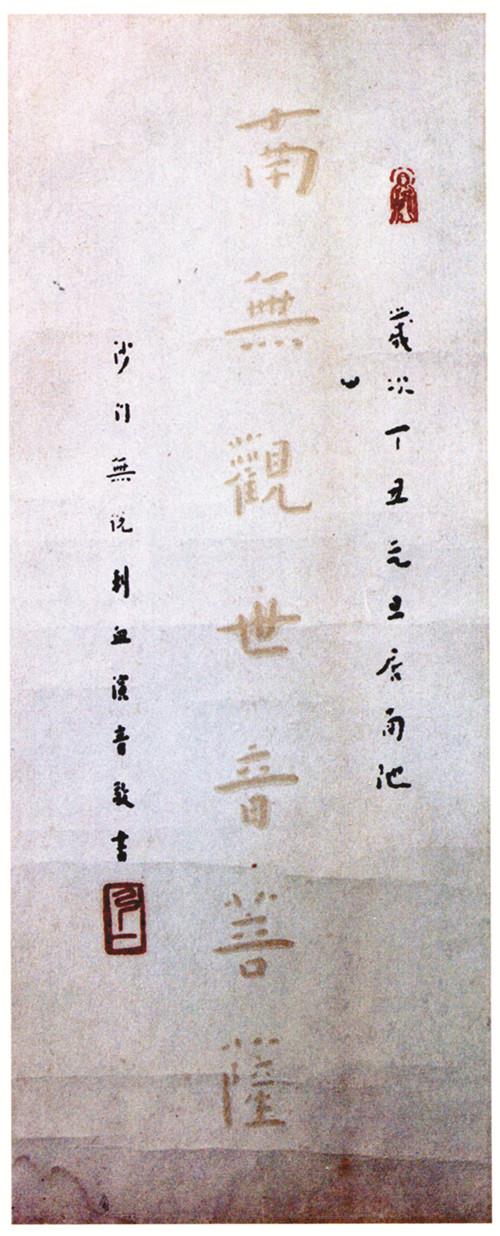 歲次丁丑元旦居南池
南無觀世音菩薩
沙門無刺血演音敬書
弘一